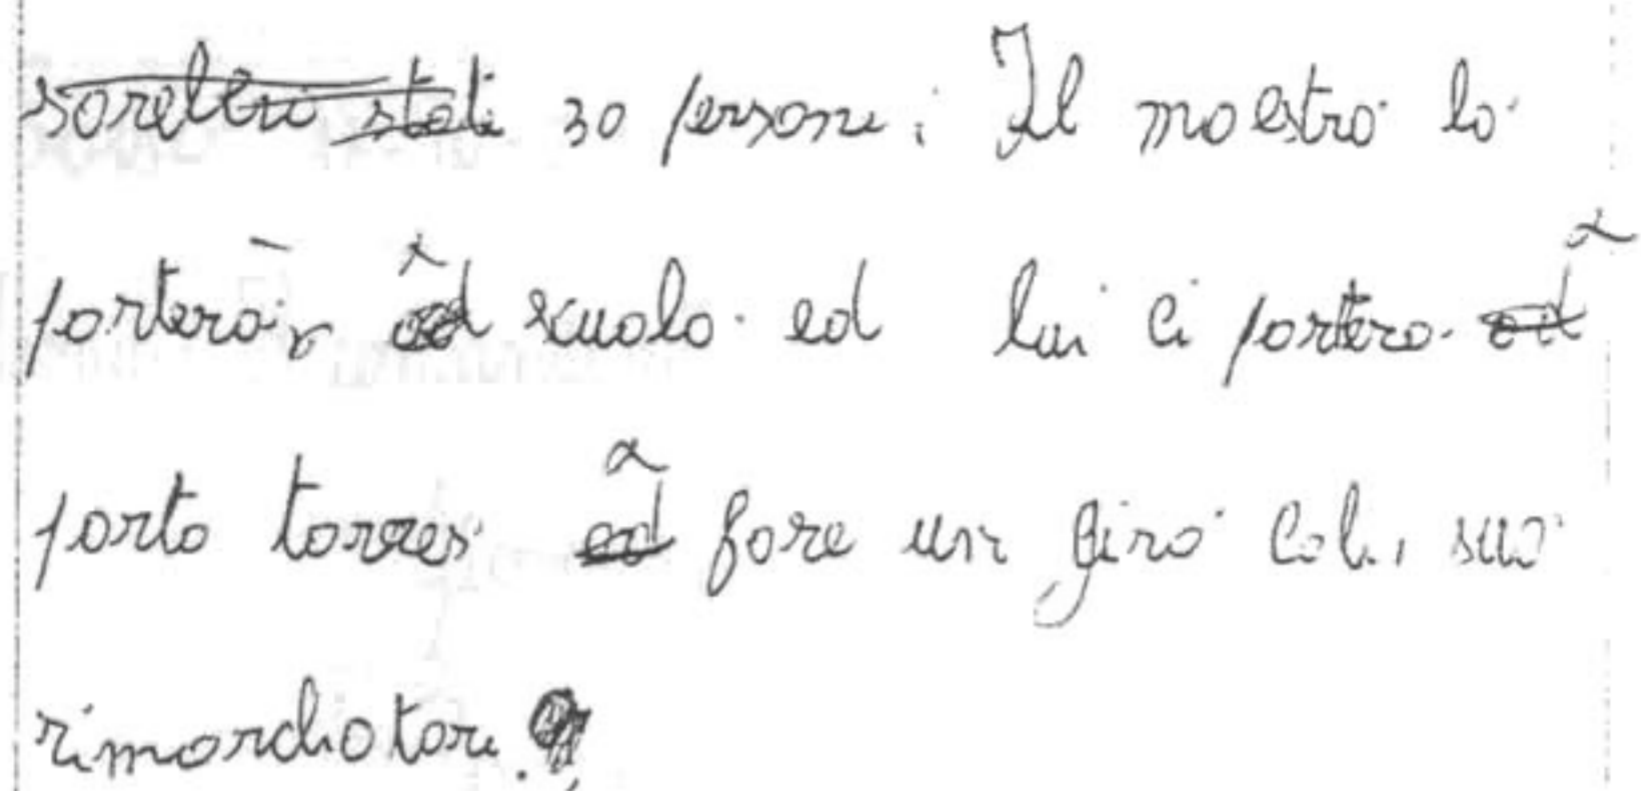 30 persone. Il maestro lo
porterà a scuola ed lui ci porterà a
porto torres a fare un giro col suo
rimorchiatore.